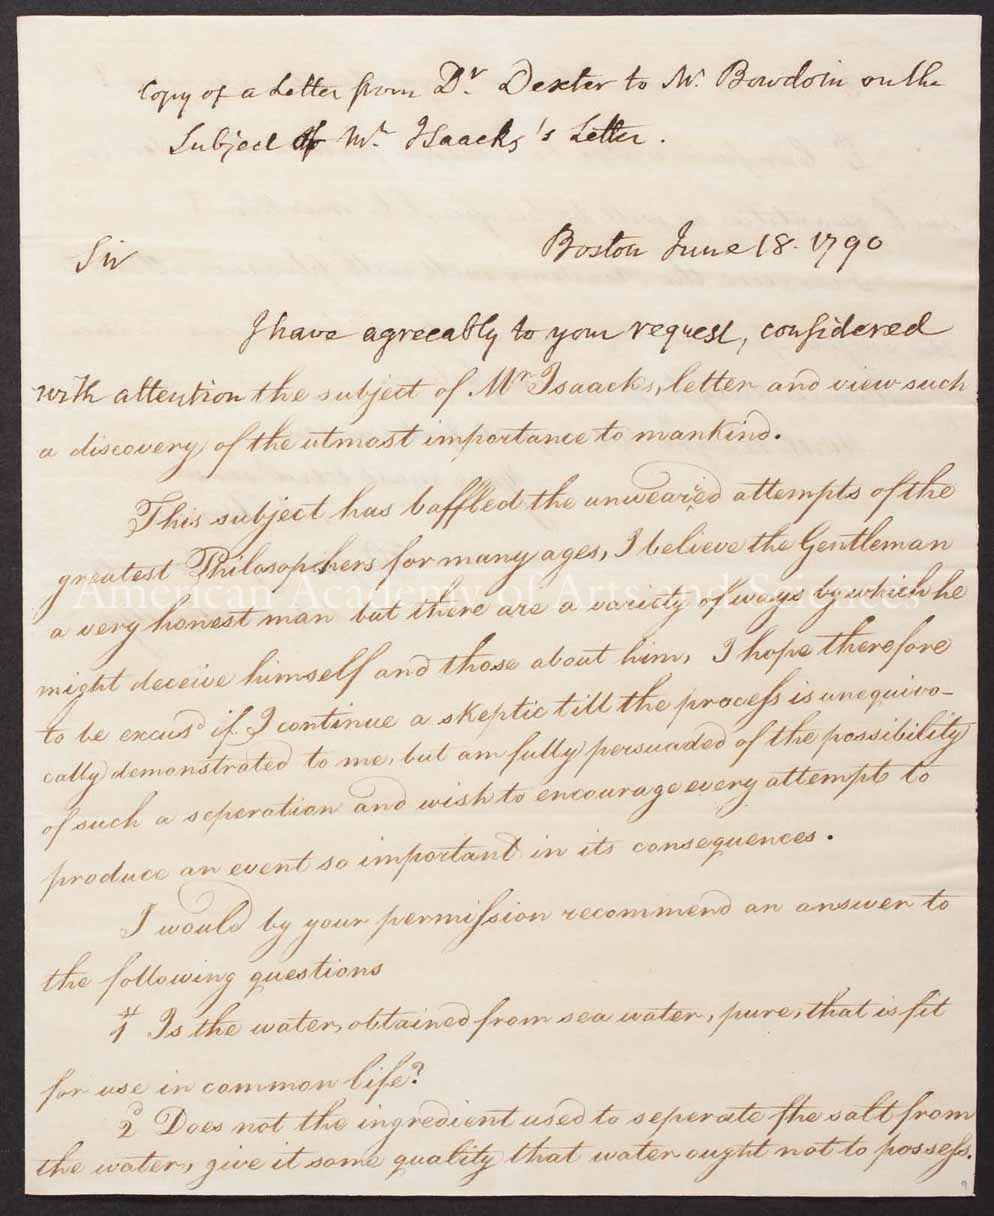 Copy of a Letter from Dr. Dexter to Mr. Bowdoin on the
Subject of Mr. Isaacks's Letter.
Boston June 18. 1790
Sir
I have agreeably to your request, considered
with attention the subject of Mr Isaacks, letter and view such
a discovery of the utmost importance to mankind.
This subject has baffled the unwearied attempts of the
greatest Philosophers for many ages, I believe the Gentleman
American Academy of Arts and Sciences
a very honest man but there are a variety of ways by which he
might deceive himself and those about him, I hope therefore
to be excusd if I continue a skeptic till the process is unequivo-
cally demonstrated to me, but am fully persuaded of the possibility
of such a seperation and wish to encourage every attempt to
produce an event so important in its consequences.
I would by your permission recommend an answer to
the following questions
1st Is the water, obtained from sea water, pure, that is fit
for use in common life?
2d Does not the ingredient used to seperate the salt from
the water, give it some quality that water ought not to possess.
9